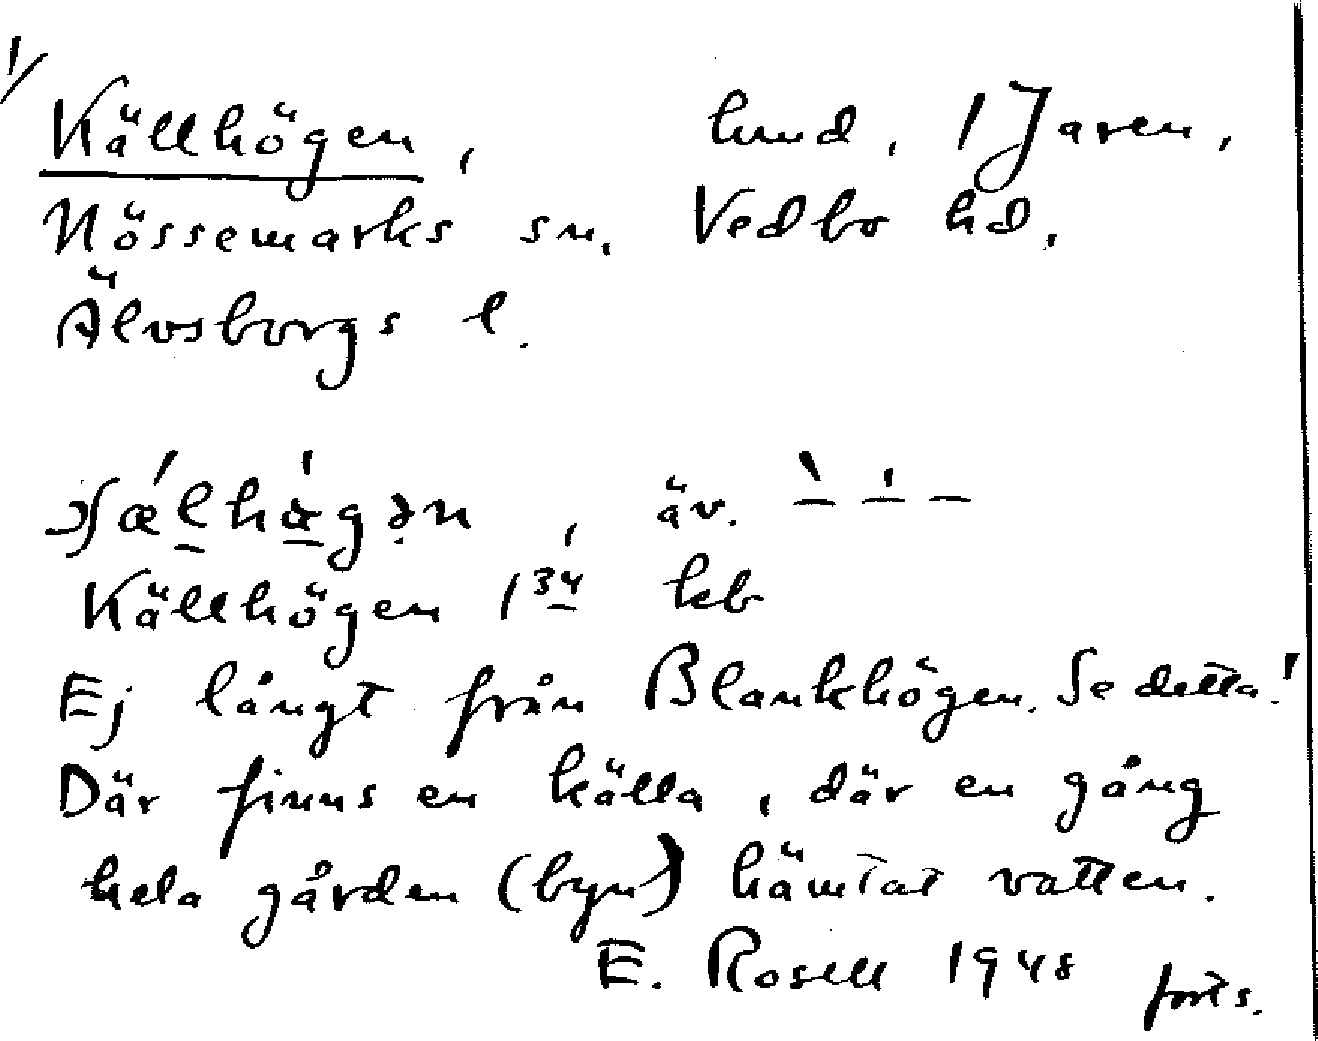 1/
Källhögen, lund, 1 Jaren,
Nössemarks sn. Vedbo hd.
Älvsborgs l.
äv.
Källhögen 1 34 kb
Ej långt från Blankhögen. Se detta!
Där finns en källa, där en gång
hela gården (byn) hämtat vatten.
E. Rosell 1948 forts.